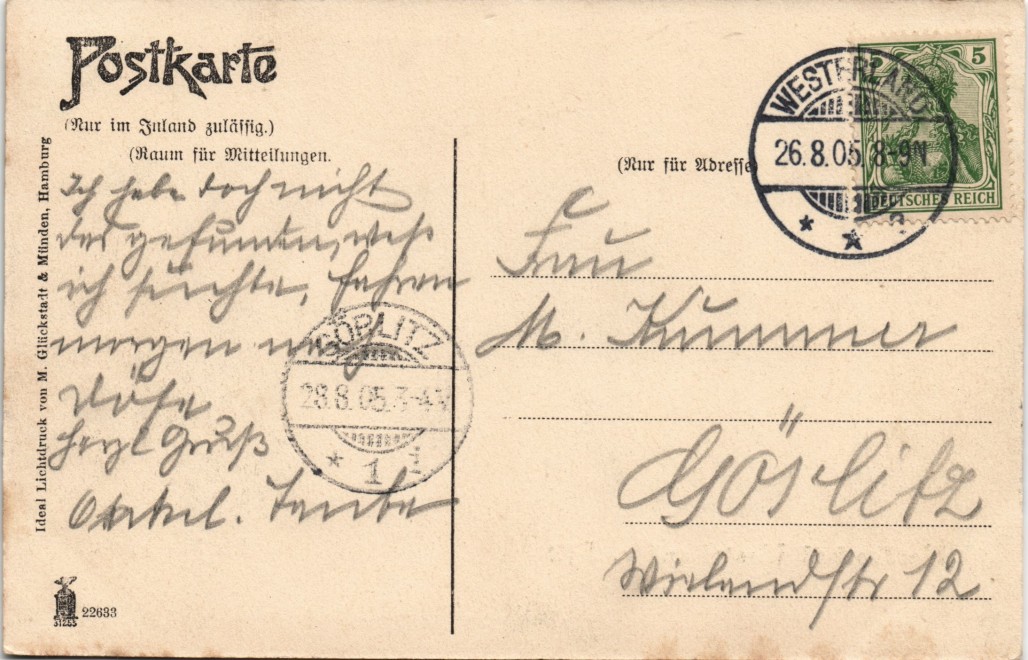 Postkarte
(Nur im Inland zulässig.)
(Raum für Mitteilungen.
Ich habe doch nicht
das gefunden, was
ich suchte, fahren
morgen nach
Döse
Herzl Gruß
Onkel. Taube
Ideal Lichtdruck von M. Glückstadt & Münden, Hamburg
22633
GÖRLITZ
28.8.05. 3-4N
* 1
(Nur für Adresse)
WESTERLAND
26.8.05. 8-9N
* *
5
DEUTSCHES REICH
Frau
M. Kummer
Görlitz
Wielandstr 12.